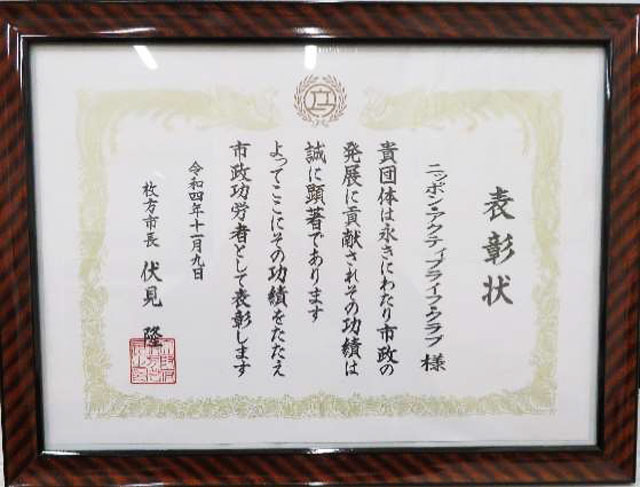 表彰状
ニッポン・アクティブライフ・クラブ 様
貴団体は永きにわたり市政の
発展に貢献されその功績は
誠に顕著であります
よってここにその功績をたたえ
市政功労者として表彰します
令和四年十一月九日
枚方市長 伏見 隆